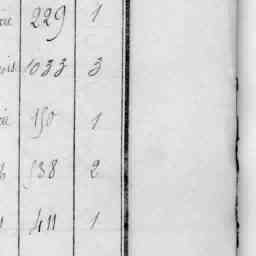 229 1
1033 3
150 1
538 2
411 1